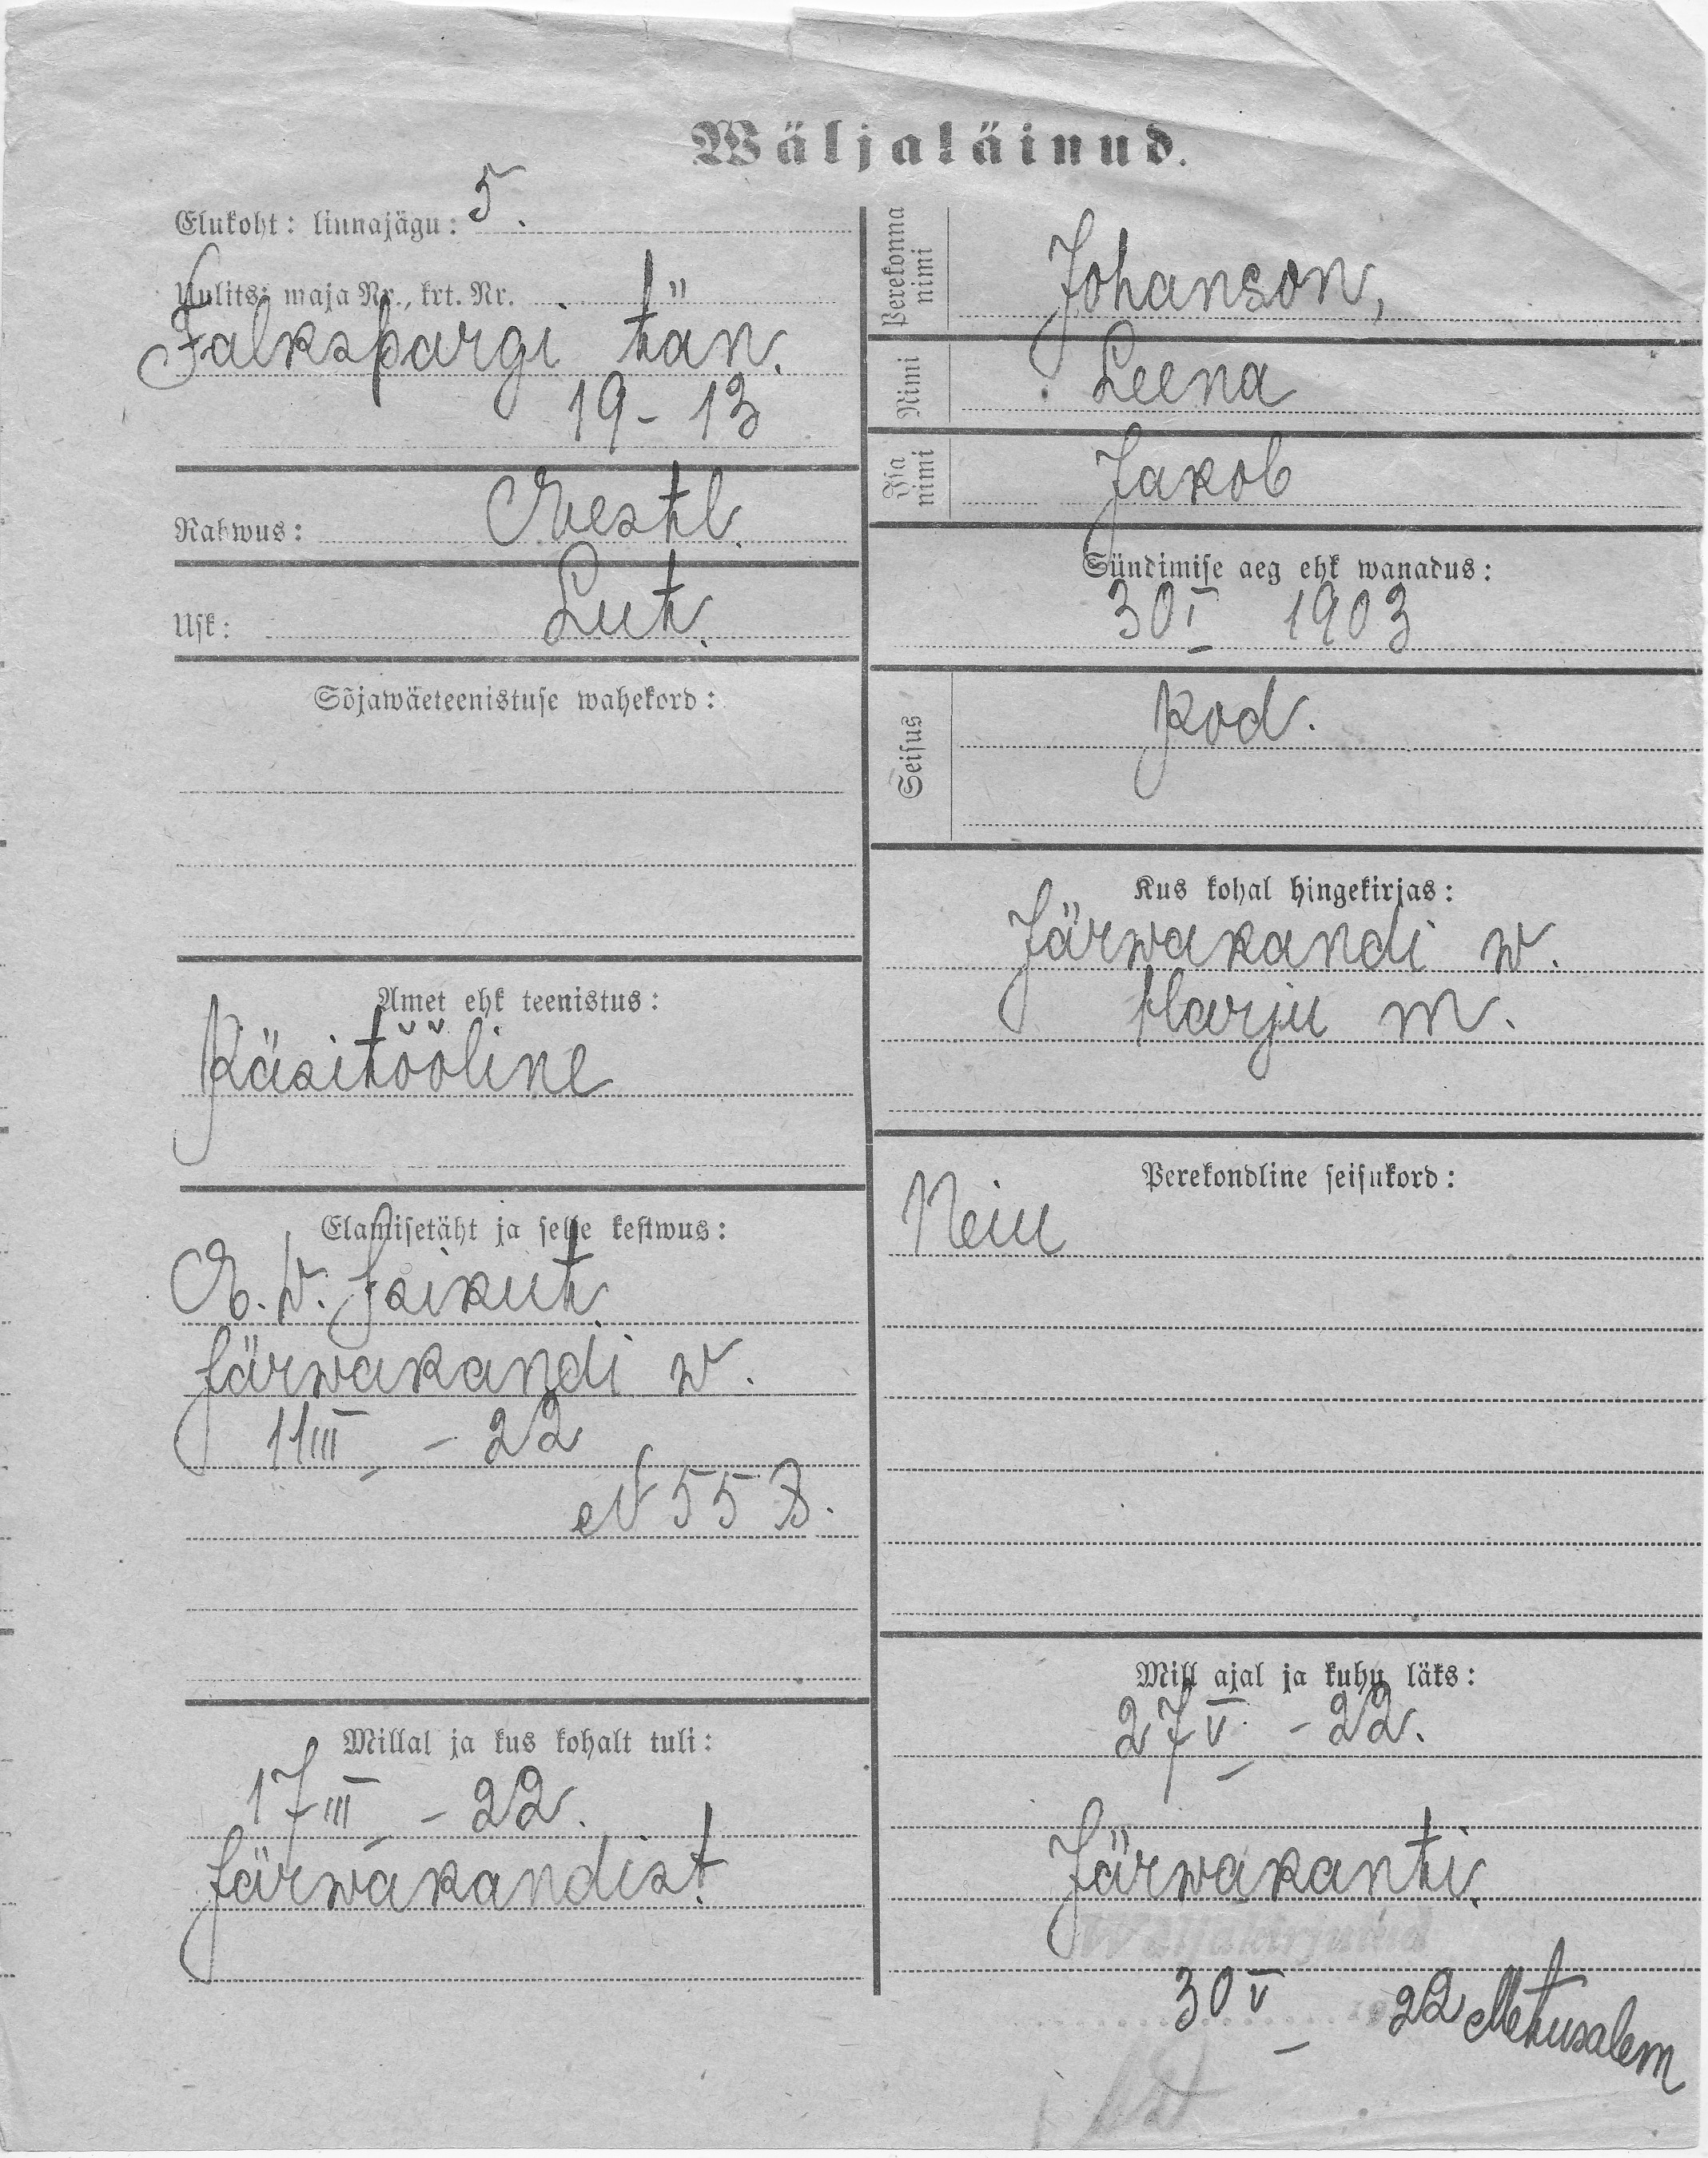 Wäljaläinud.
Elukoht: linnajägu: 5.
Uulits, maja Nr., krt. Nr.
Falkspargi tän.
19 - 13
Rahwus: Eestl.
Usk: Lut.
Sõjawäeteenistuse wahekord:
Amet ehk teenistus:
Käsitööline
Elamisetäht ja selle kestwus:
E. W. Isikut.
Järwakandi w.
11 III - 22
№ 558.
Millal ja kus kohalt tuli:
17 III - 22.
Järwakandist.
Perekonna nimi
Johanson,
Nimi
Leena
Isa nimi
Jakob
Sündimise aeg ehk wanadus:
30 I 1903
Seisus
kod.
Kus kohal hingekirjas:
Järwakandi w.
Harju m.
Perekondline seisukord:
Neiu
Mill ajal ja kuhu läks:
27 V - 22.
Järwakanti.
Wäljakirjutud
30 V 22 Metusalem